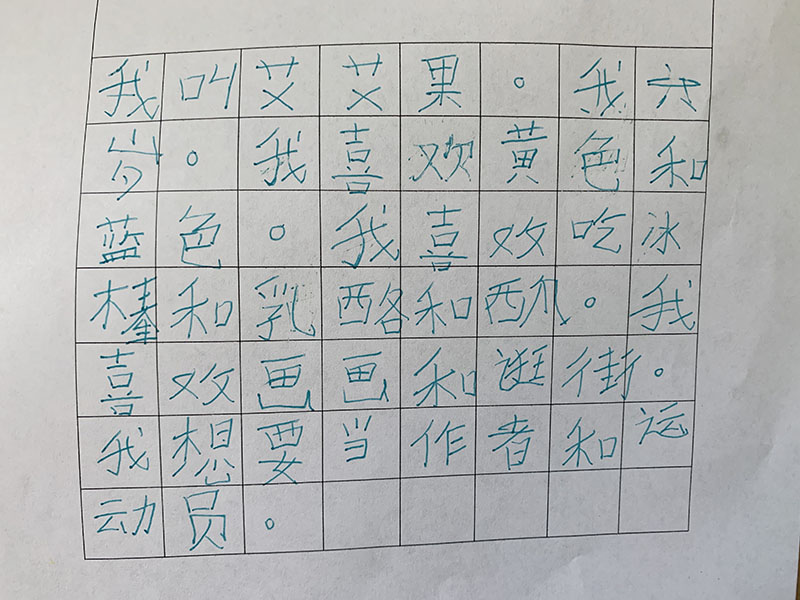 我叫艾艾果。我六
岁。我喜欢黄色和
蓝色。我喜欢吃冰
和乳酪和。我
喜欢画画和逛街。
我想要当作者和运
动员。